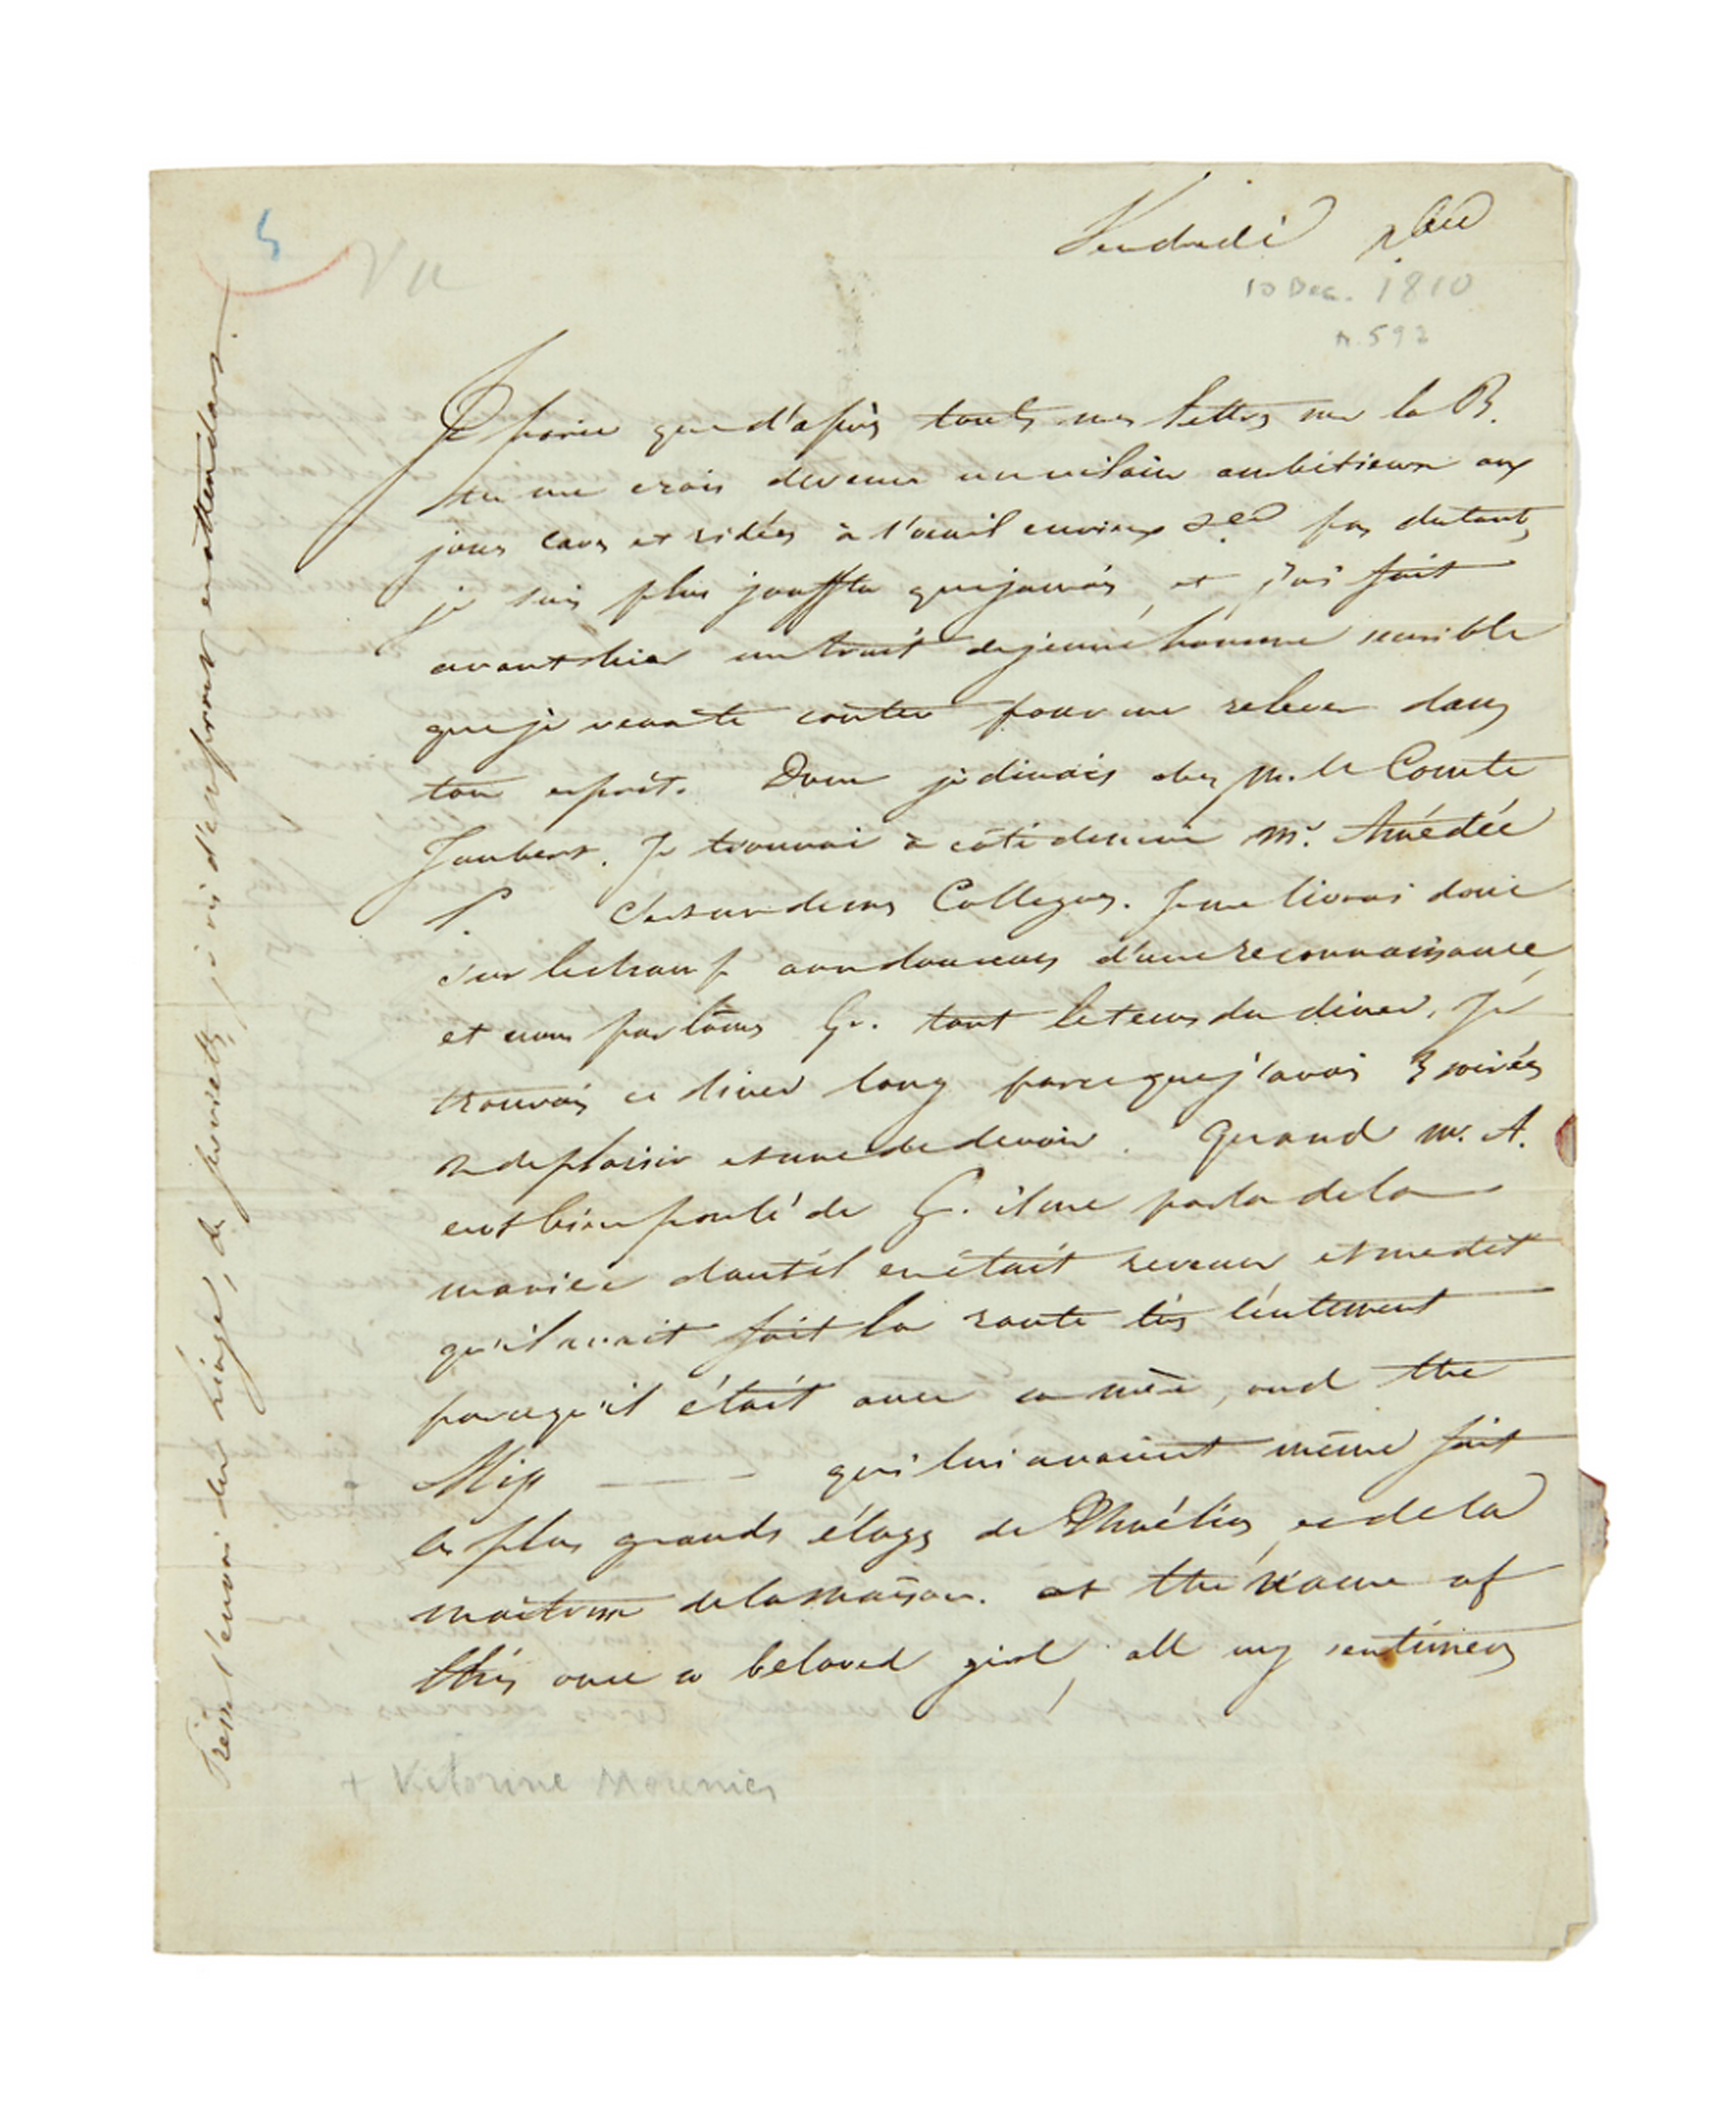 5
Vu
Vendredi xbre
10 Dec. 1810
n. 592
Je parie que d'après toutes mes lettres sur la B.
tu me crois devenu un vilain ambitieux aux
joues caves et ridées à l'œuil envieux &ca pas du tout,
je suis plus joufflu que jamais, et j'ai fait
avant hier un trait de jeune homme sensible
que je veux te conter pour me relever dans
ton esprit. Donc je dinais chez M. le Comte
Joubert. Je trouvai à côté de moi Mr. Amédée
P. C'est un de mes Collegues. Je me livrai donc
sur le champ aux douceurs d'une reconnaissance,
et nous parlâmes Gr. tout le tems du diner. Je
trouvais ce diner long parce que j'avais 3 soirées
2 de plaisir et une de devoir. Quand M. A.
eut bien parlé de G. il me parla de la
manière dont il en était revenu et me dit
qu'il avait fait la route très lentement
parce qu'il était avec sa mère, and the
Miss — — qui lui avaient même fait
les plus grands éloges de et de la
maitresse de la maison. at the name of
this once so beloved girl, all my sentimens
+ Victorine Mounier
Presse l'envoi du linge, de serviettes, je vis d'emprunt en attendant.